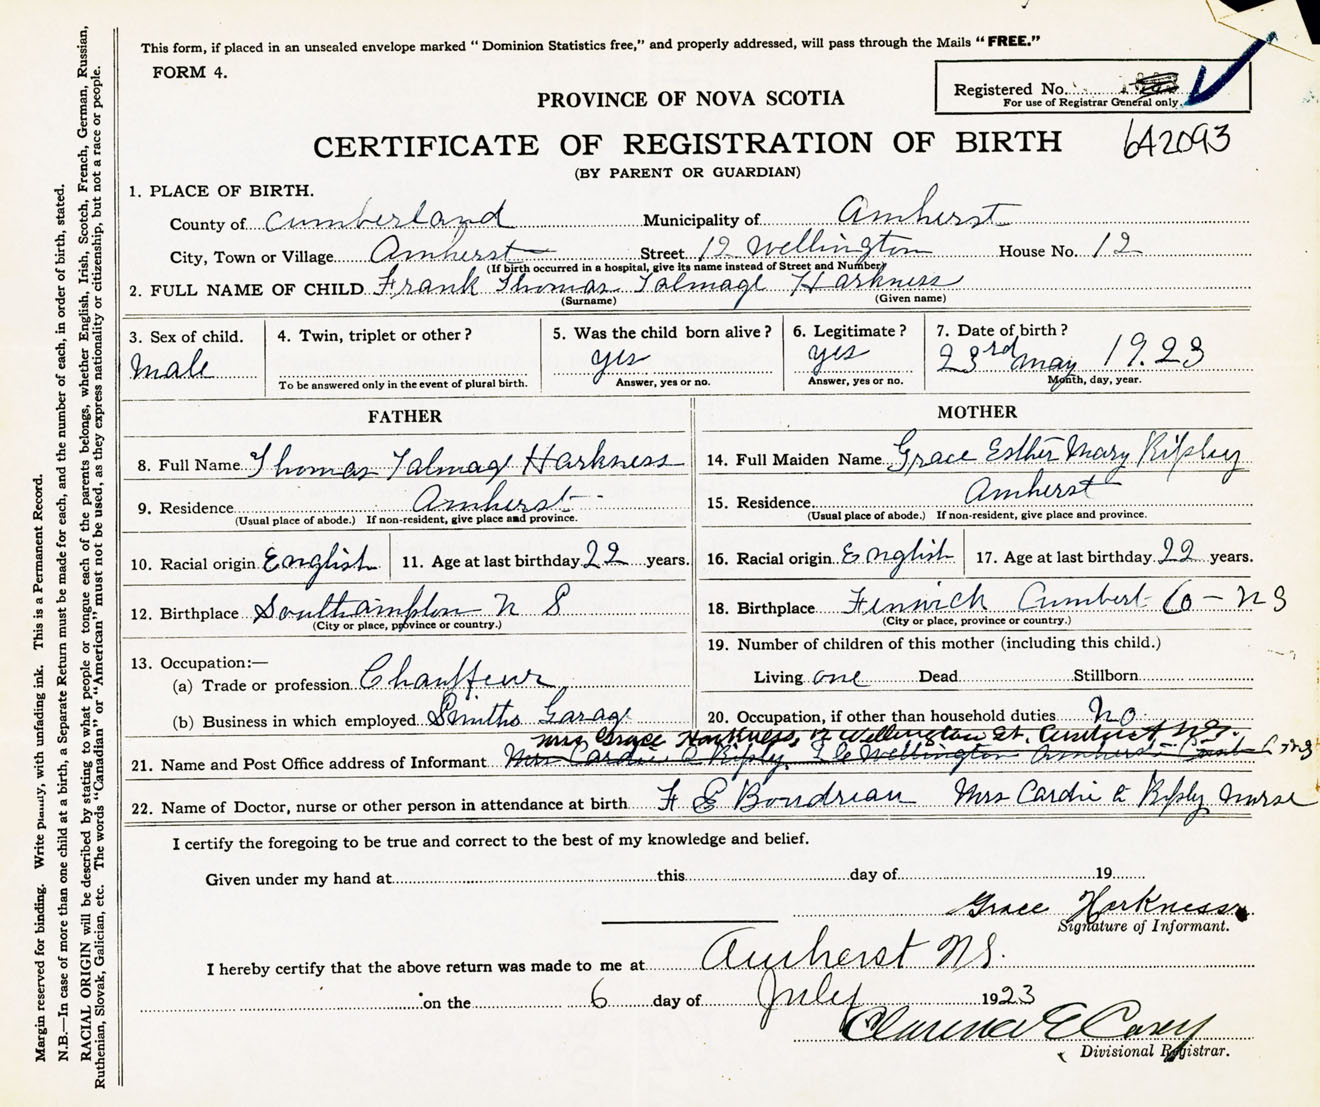 This form, if placed in an unsealed envelope marked “ Dominion Statistics free,” and properly addressed, will pass through the Mails “ FREE.”
FORM 4.
Registered No.
For use of Registrar General only.
PROVINCE OF NOVA SCOTIA
642093
CERTIFICATE OF REGISTRATION OF BIRTH
(BY PARENT OR GUARDIAN)
1. PLACE OF BIRTH.
County of Cumberland Municipality of Amherst
City, Town or Village Amherst Street 12 Wellington House No. 12
(If birth occurred in a hospital, give its name instead of Street and Number)
2. FULL NAME OF CHILD Frank Thomas Talmage Harkness
(Surname) (Given name)
3. Sex of child. 4. Twin, triplet or other ? 5. Was the child born alive ? 6. Legitimate ? 7. Date of birth ?
Male yes yes 23rd May 1923
To be answered only in the event of plural birth. Answer, yes or no. Answer, yes or no. Month, day, year.
FATHER MOTHER
8. Full Name Thomas Talmage Harkness 14. Full Maiden Name Grace Esther Mary Ripley
9. Residence Amherst 15. Residence Amherst
(Usual place of abode.) If non-resident, give place and province. (Usual place of abode.) If non-resident, give place and province.
10. Racial origin English 11. Age at last birthday 22 years. 16. Racial origin English 17. Age at last birthday 22 years.
12. Birthplace Southampton N S 18. Birthplace Fenwick Cumbert Co - N S
(City or place, province or country.) (City or place, province or country.)
19. Number of children of this mother (including this child.)
13. Occupation:—
(a) Trade or profession Chauffeur Living one Dead Stillborn
(b) Business in which employed Smiths Garage 20. Occupation, if other than household duties No
Mrs Grace Harkness, 12 Wellington St. Amherst N.S.
21. Name and Post Office address of Informant Mrs Cardie E Ripley Wellington Amherst
22. Name of Doctor, nurse or other person in attendance at birth F E Boudreau Mrs Cardie E Ripley Nurse
I certify the foregoing to be true and correct to the best of my knowledge and belief.
Given under my hand at this day of 19
Grace Harkness
Signature of Informant.
I hereby certify that the above return was made to me at Amherst N.S.
on the 6 day of July 1923
Clarence E Casey
Divisional Registrar.
Margin reserved for binding. Write plainly, with unfading ink. This is a Permanent Record.
N.B.—In case of more than one child at a birth, a Separate Return must be made for each, and the number of each, in order of birth, stated.
RACIAL ORIGIN will be described by stating to what people or tongue each of the parents belongs, whether English, Irish, Scotch, French, German, Russian,
Ruthenian, Slovak, Galician, etc. The words “Canadian” or “American” must not be used, as they express nationality or citizenship, but not a race or people.